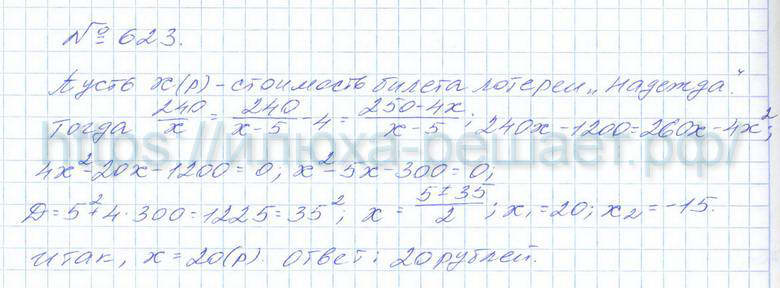 № 623.
Пусть x(р) - стоимость билета лотереи „Надежда".
Тогда 240/x = 240/(x-5) - 4 = (250-4x)/(x-5); 240x - 1200 = 260x - 4x²;
4x² - 20x - 1200 = 0; x² - 5x - 300 = 0;
D = 5² + 4·300 = 1225 = 35²; x = (5±35)/2; x₁ = 20; x₂ = -15.
Итак, x = 20(р). Ответ: 20 рублей.
https://илюха-решает.рф/